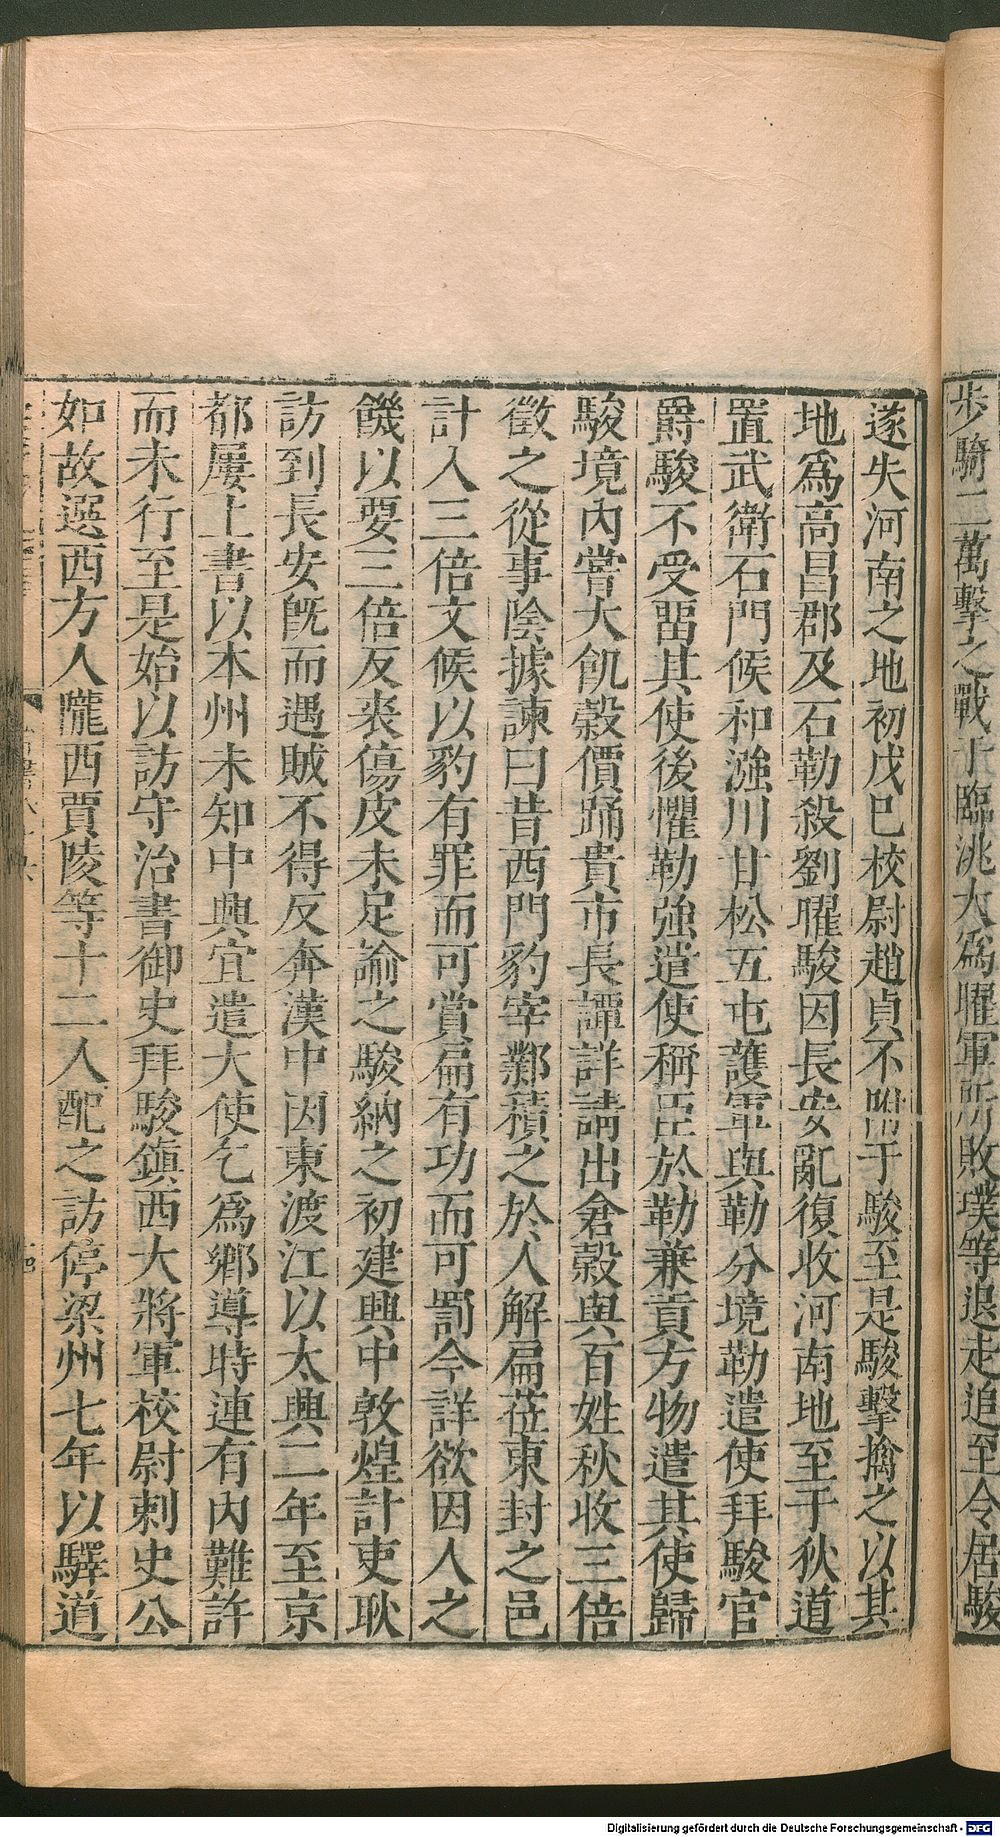 步騎二萬擊之戰于臨洮大爲曜軍所敗璞等退走追至令居駿
遂失河南之地初戊巳校尉趙貞不附于駿至是駿擊擒之以其
地爲高昌郡及石勒殺劉曜駿因長安亂復收河南地至于狄道
置武衛石門候和漒川甘松五屯護軍與勒分境勒遣使拜駿官
爵駿不受留其使後懼勒強遣使稱臣於勒兼貢方物遣其使歸
駿境內嘗大飢穀價踊貴市長譚詳請出倉穀與百姓秋收三倍
徵之從事陰據諫曰昔西門豹宰鄴積之於人解扁莅東封之邑
計入三倍文候以豹有罪而可賞扁有功而可罰今詳欲因人之
饑以要三倍反裘傷皮未足諭之駿納之初建興中敦煌計吏耿
訪到長安既而遇賊不得反奔漢中因東渡江以太興二年至京
都屢上書以本州未知中興宜遣大使乞爲鄉導時連有內難許
而未行至是始以訪守治書御史拜駿鎮西大將軍校尉刺史公
如故選西方人隴西賈陵等十二人配之訪停梁州七年以驛道
Digitalisierung gefördert durch die Deutsche Forschungsgemeinschaft - DFG